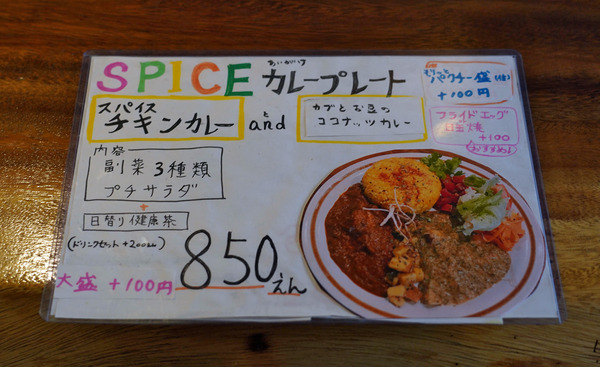 あいがけ
SPICE カレープレート
スパイス
チキンカレー
と
and
カブとお豆の
ココナッツカレー
内容
副菜3種類
プチサラダ
+
日替り健康茶
(ドリンクセット +200えん)
850えん
大盛 +100円
パクチー盛
+100円
フライドエッグ
+100
おすすめ!